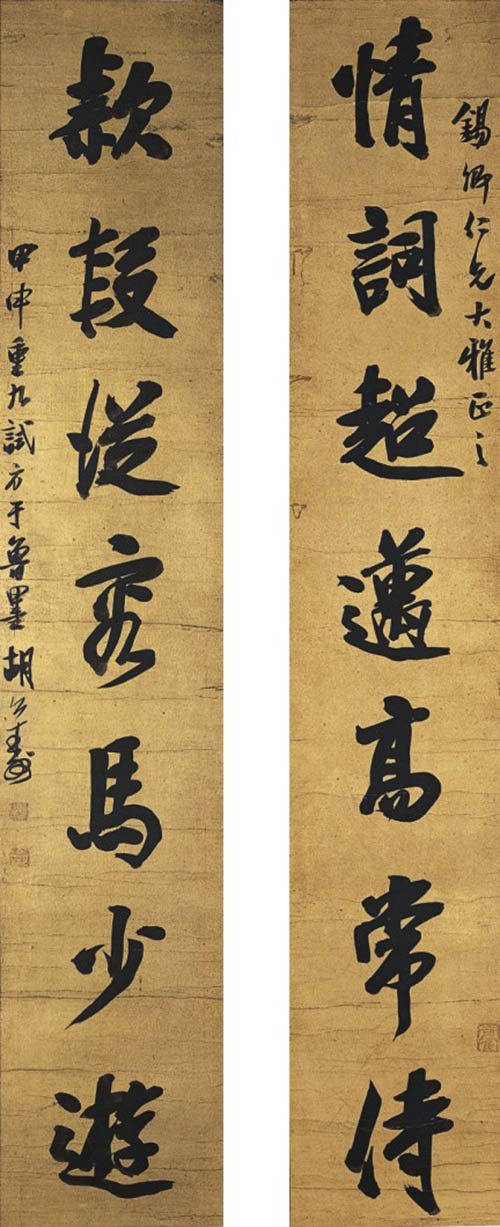 錫卿仁兄大雅正之
情詞超邁高常侍
款段從容馬少遊
甲申重九試方于魯墨胡公壽